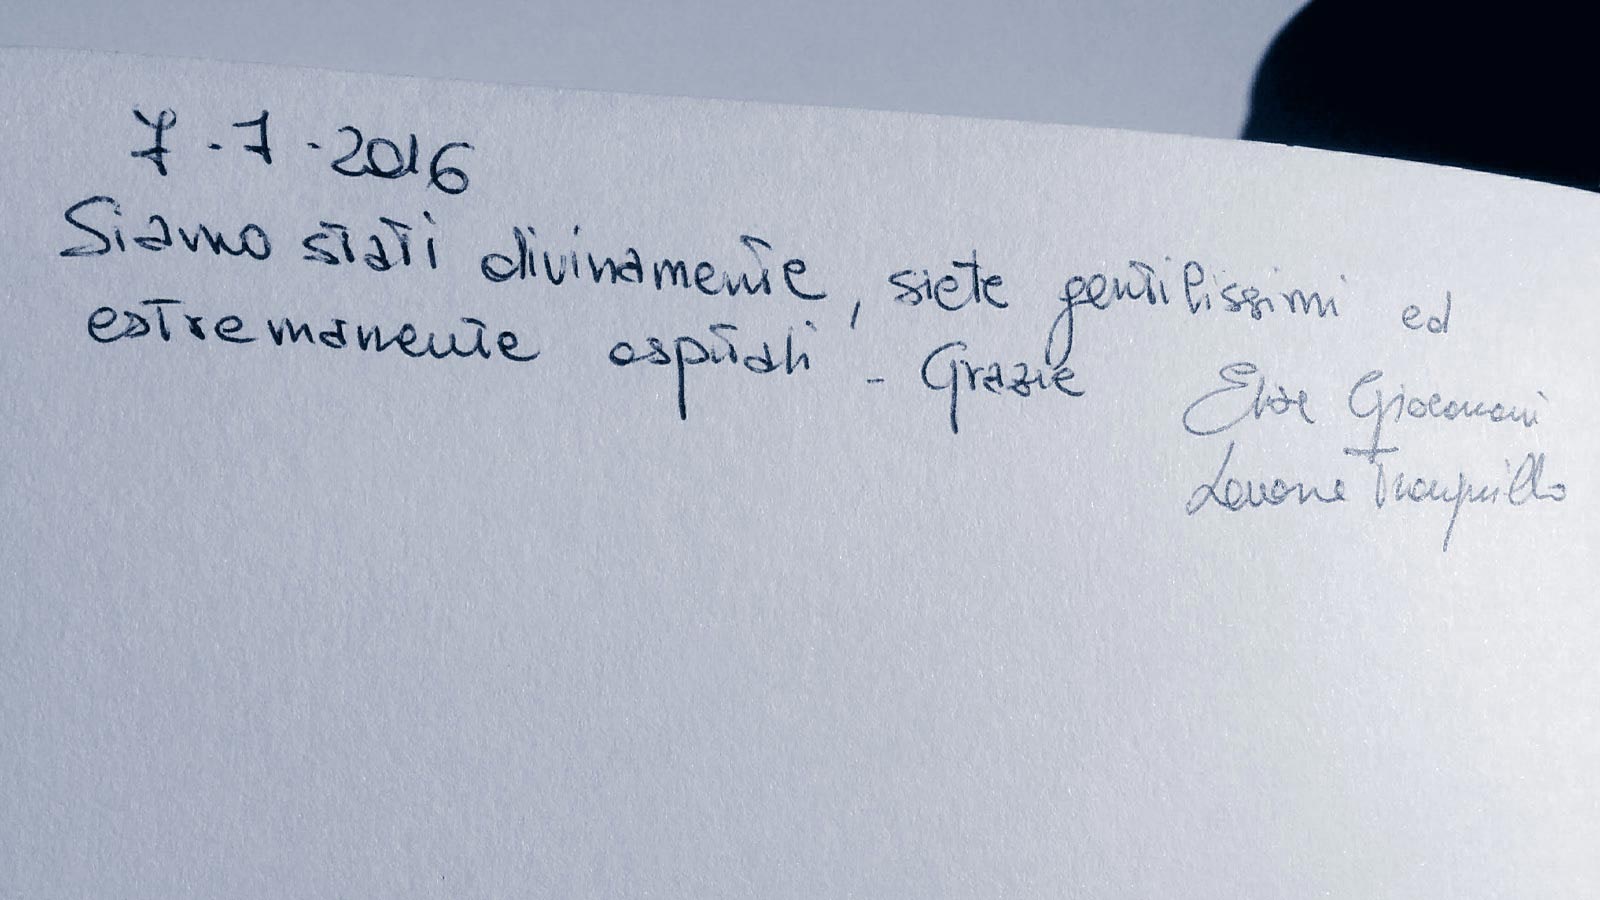 7.7.2016
Siamo stati divinamente, siete gentilissimi ed
estremamente ospitali - Grazie
Tranquillo